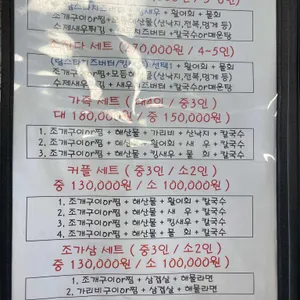 조개구이or찜 + 해산물(산낙지,전복,멍게 등)
수제새우튀김 + 칼국수or매운탕
세트 (270,000원 / 4~5인)
선택1 + 활어회 + 물회
조개구이or찜+모듬해산물(산낙지,전복,멍게 등)
수제새우튀김 +칼국수or매운탕
가족 세트 중3인 )
대 180,000원 / 중 150,000원
1. 조개구이or찜 + 해산물 + 가리비 + 산낙지 + 칼국수
2. 조개구이or찜 + 활어회 + 칼국수
3. 조개구이or찜 + 킹새우 + 물 회 + 칼국수
커플 세트 ( 중3인 / 소2인 )
중 130,000원 / 소 100,000원
1. 조개구이or찜 + 해산물 + 활어회 + 칼국수
2. 조개구이or찜 + 해산물 + 새 우 + 칼국수
3. 조개구이or찜 + 해산물 + 킹새우 + 칼국수
4. 조개구이or찜 + 해산물 + 물 회 + 칼국수
조가삼 세트 ( 중3인 / 소2인 )
중 130,000원 / 소 100,000원
1. 조개구이or찜 + 삼겹살 + 해물라면
2. 가리비구이or찜 + 삼겹살 + 해물라면